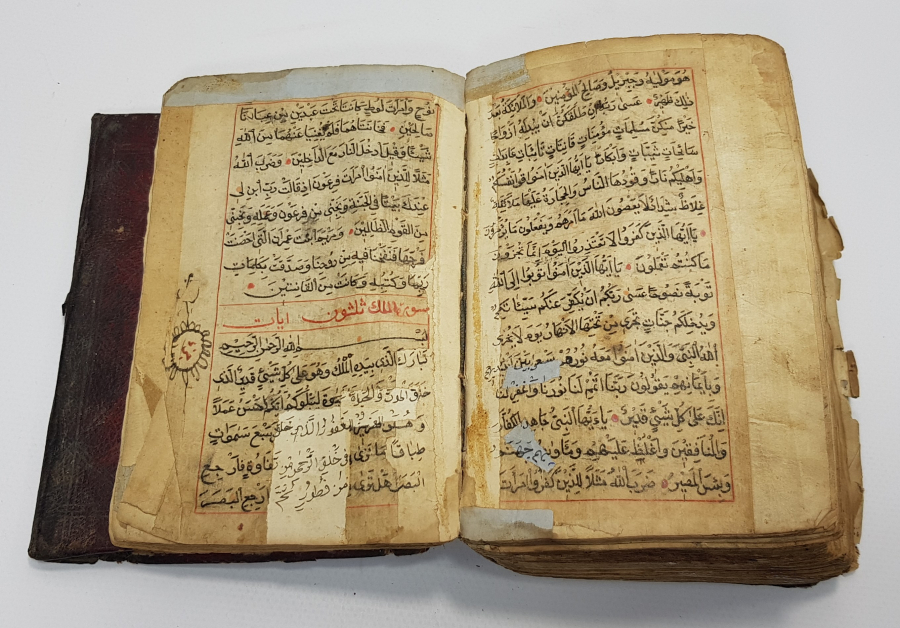 هو موليه وجبريل وصالح المؤمنين والملائكة بعد
ذلك ظهير عسى ربه ان طلقكن ان يبدله ازواجا
خيرا منكن مسلمات مؤمنات قانتات تائبات عابدات
سائحات ثيبات وابكارا يا ايها الذين امنوا قوا انفسكم
واهليكم نارا وقودها الناس والحجارة عليها ملائكة
غلاظ شداد لا يعصون الله ما امرهم ويفعلون ما يؤمرون
يا ايها الذين كفروا لا تعتذروا اليوم انما تجزون
ما كنتم تعملون يا ايها الذين امنوا توبوا الى الله
توبة نصوحا عسى ربكم ان يكفر عنكم سيئاتكم
ويدخلكم جنات تجرى من تحتها الانهار يوم لا يخزى
الله النبى والذين امنوا معه نورهم يسعى بين
وبايمانهم يقولون ربنا اتمم لنا نورنا واغفر لنا
انك على كل شيئ قدير يا ايها النبى جاهد الكفار
والمنافقين واغلظ عليهم ومأويهم جهنم
وبئس المصير ضرب الله مثلا للذين كفروا امرات
نوح وامرات لوط كانتا تحت عبدين من عبادنا
صالحين فخانتاهما فلم يغنيا عنهما من الله
شيئا وقيل ادخلا النار مع الداخلين وضرب الله
مثلا للذين امنوا امرات فرعون اذ قالت رب ابن لى
عندك بيتا فى الجنة ونجنى من فرعون وعمله ونجنى
من القوم الظالمين ومريم ابنت عمران التى احصنت
فرجها فنفخنا فيه من روحنا وصدقت بكلمات
ربها وكتبه وكانت من القانتين
سورة الملك ثلثون ايات
بسم الله الرحمن الرحيم
تبارك الذى بيده الملك وهو على كل شيئ قدير الذى
خلق الموت والحيوة ليبلوكم ايكم احسن عملا
وهو العزيز الغفور الذى خلق سبع سموات
طباقا ما ترى فى خلق الرحمن من تفاوت فارجع
البصر هل ترى من فطور ثم ارجع البصر